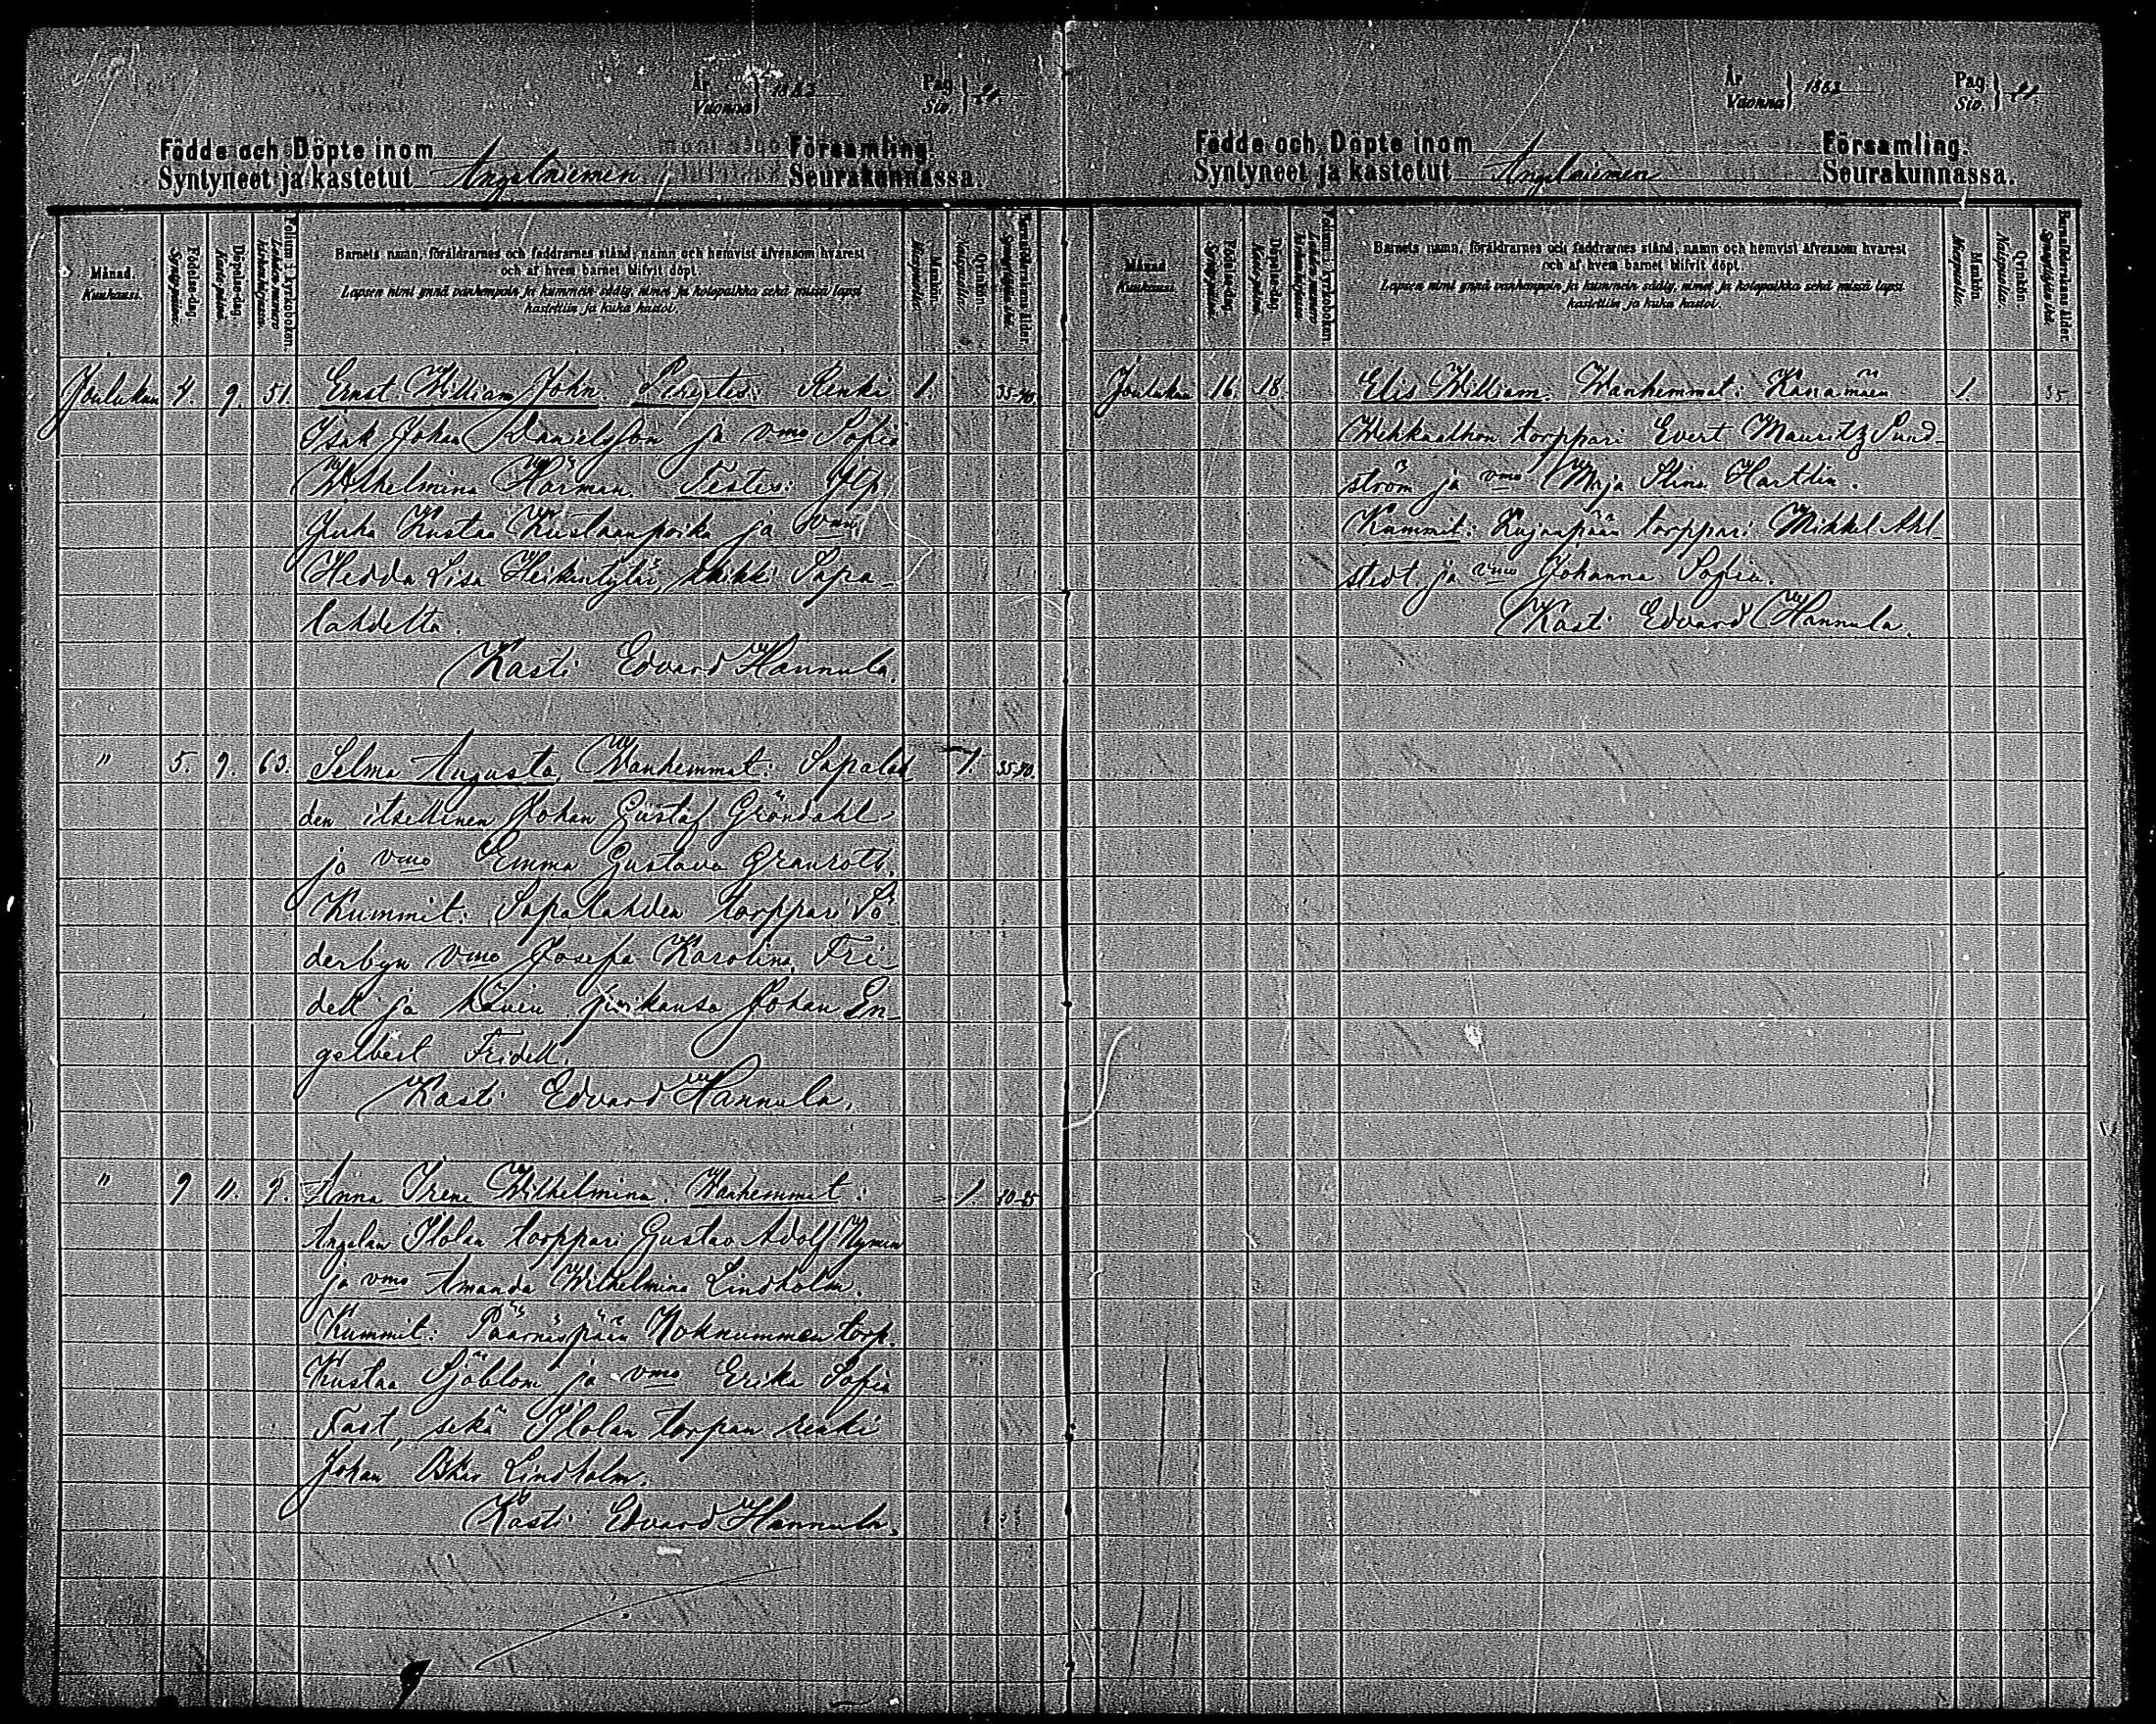 År Vuonna } 1883 Pag Siv. }
Födde och Döpte inom Församling.
Syntyneet ja kastetut Angelniemen Seurakunnassa.
Månad. Kuukausi.
Födelse-dag. Syntymä-päivä.
Döpelse-dag. Kaste-päivä.
Folium i Kyrkoboken. Lehden numero kirkonkirjassa.
Barnets namn, föräldrarnes och faddrarnes stånd, namn och hemvist äfvensom hvarest
och af hvem barnet blifvit döpt.
Lapsen nimi ynnä vanhempain ja kummein sääty, nimet ja kotopaikka sekä missä lapsi
kastettiin ja kuka kastoi.
Mankön. Miespuolia.
Qvinkön. Naispuolia.
Barnaföderskans ålder. Synnyttäjän ikä.
Joulukuu 4. 9. 51. Ernst William John. Renki 1. 35-40.
Isak Johan Danielsson ja vmo Sofia
Wilhelmina Hörman. Testes: Itp.
Juha Kustaa Kustaanpoika ja vmo
Hedda Lisa Heikintytär, kaikki Sapa-
lahdelta.
Kasti Edvard Hannula.
" 5. 9. 63. Selma Augusta. Wanhemmat: Sapalah- 1. 35-40.
den itsellinen Johan Gustaf Gröndahl
ja vmo Emma Gustava Granroth.
Kummit: Sapalahden torppari Sö-
derbyn vmo Josefa Karolina Fri-
dell ja hänen poikansa Johan En-
gelbert Fridell.
Kasti Edvard Hannula.
" 9 11. 9. Anna Irene Wilhelmina. Wanhemmat:
1.
Angelan Ilolan torppari Gustav Adolf Nyman
ja vmo Amanda Wilhelmina Lindholm.
Kummit: Päärnäspään Noknummen torp.
Kustaa Sjöblom ja vmo Erika Sofia
Fast, sekä Ilolan torpan renki
Johan Oskar Lindholm.
Kasti Edvard Hannula.
År Vuonna } 1883 Pag Siv. }
Födde och Döpte inom Församling.
Syntyneet ja kastetut Angelniemen Seurakunnassa.
Månad. Kuukausi.
Födelse-dag. Syntymä-päivä.
Döpelse-dag. Kaste-päivä.
Folium i Kyrkoboken. Lehden numero kirkonkirjassa.
Barnets namn, föräldrarnes och faddrarnes stånd, namn och hemvist äfvensom hvarest
och af hvem barnet blifvit döpt.
Lapsen nimi ynnä vanhempain ja kummein sääty, nimet ja kotopaikka sekä missä lapsi
kastettiin ja kuka kastoi.
Mankön. Miespuolia.
Qvinkön. Naispuolia.
Barnaföderskans ålder. Synnyttäjän ikä.
Joulukuu 16. 18. Elis William. Wanhemmat: 1. 35
torppari Evert Mauritz Sund-
ström ja vmo Maja Stina Hartlin.
Kummit: Kujanpään torppari Mikkel Ahl-
stedt ja vmo Johanna Sofia.
Kasti Edvard Hannula.